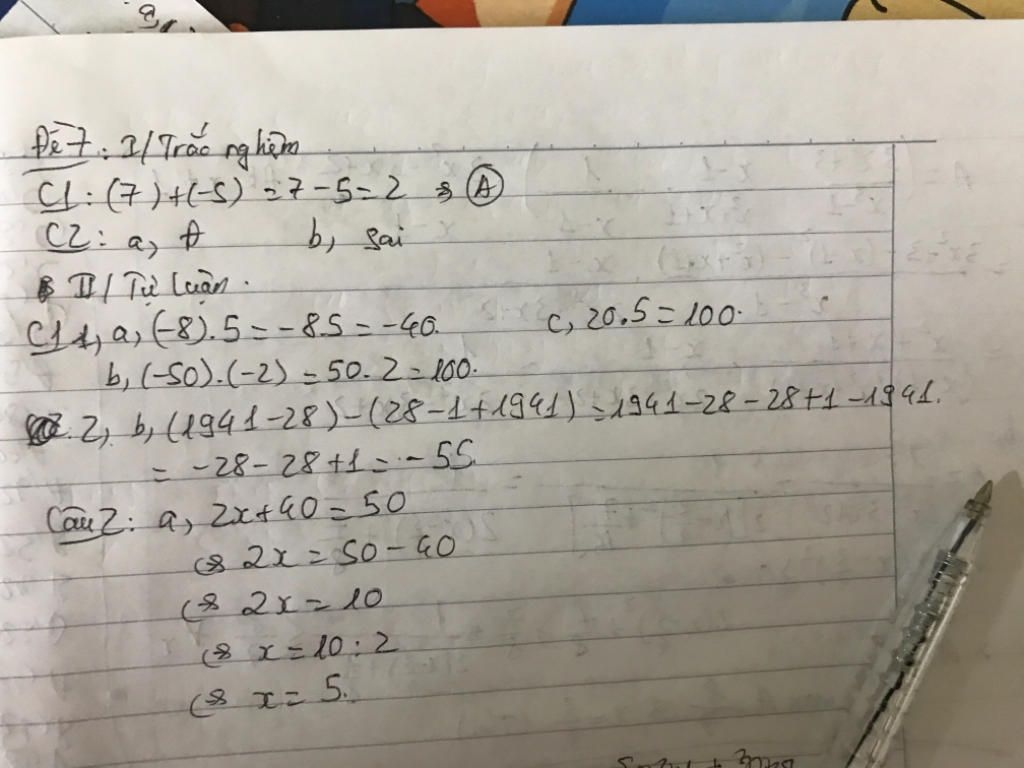 Đề 7: I/ Trắc nghiệm
C1: (7)+(-5) = 7-5=2 ⇒ A
C2: a, A b, sai
II/ Tự luận.
C1 1, a, (-8).5 = -8.5 = -40. c, 20.5 = 100.
b, (-50).(-2) = 50.2 = 100.
2, b, (1941-28)-(28-1+1941) = 1941-28-28+1-1941.
= -28-28+1 = -55.
Câu 2: a, 2x+40=50
⇔ 2x = 50-40
⇔ 2x = 10
⇔ x = 10:2
⇔ x = 5.